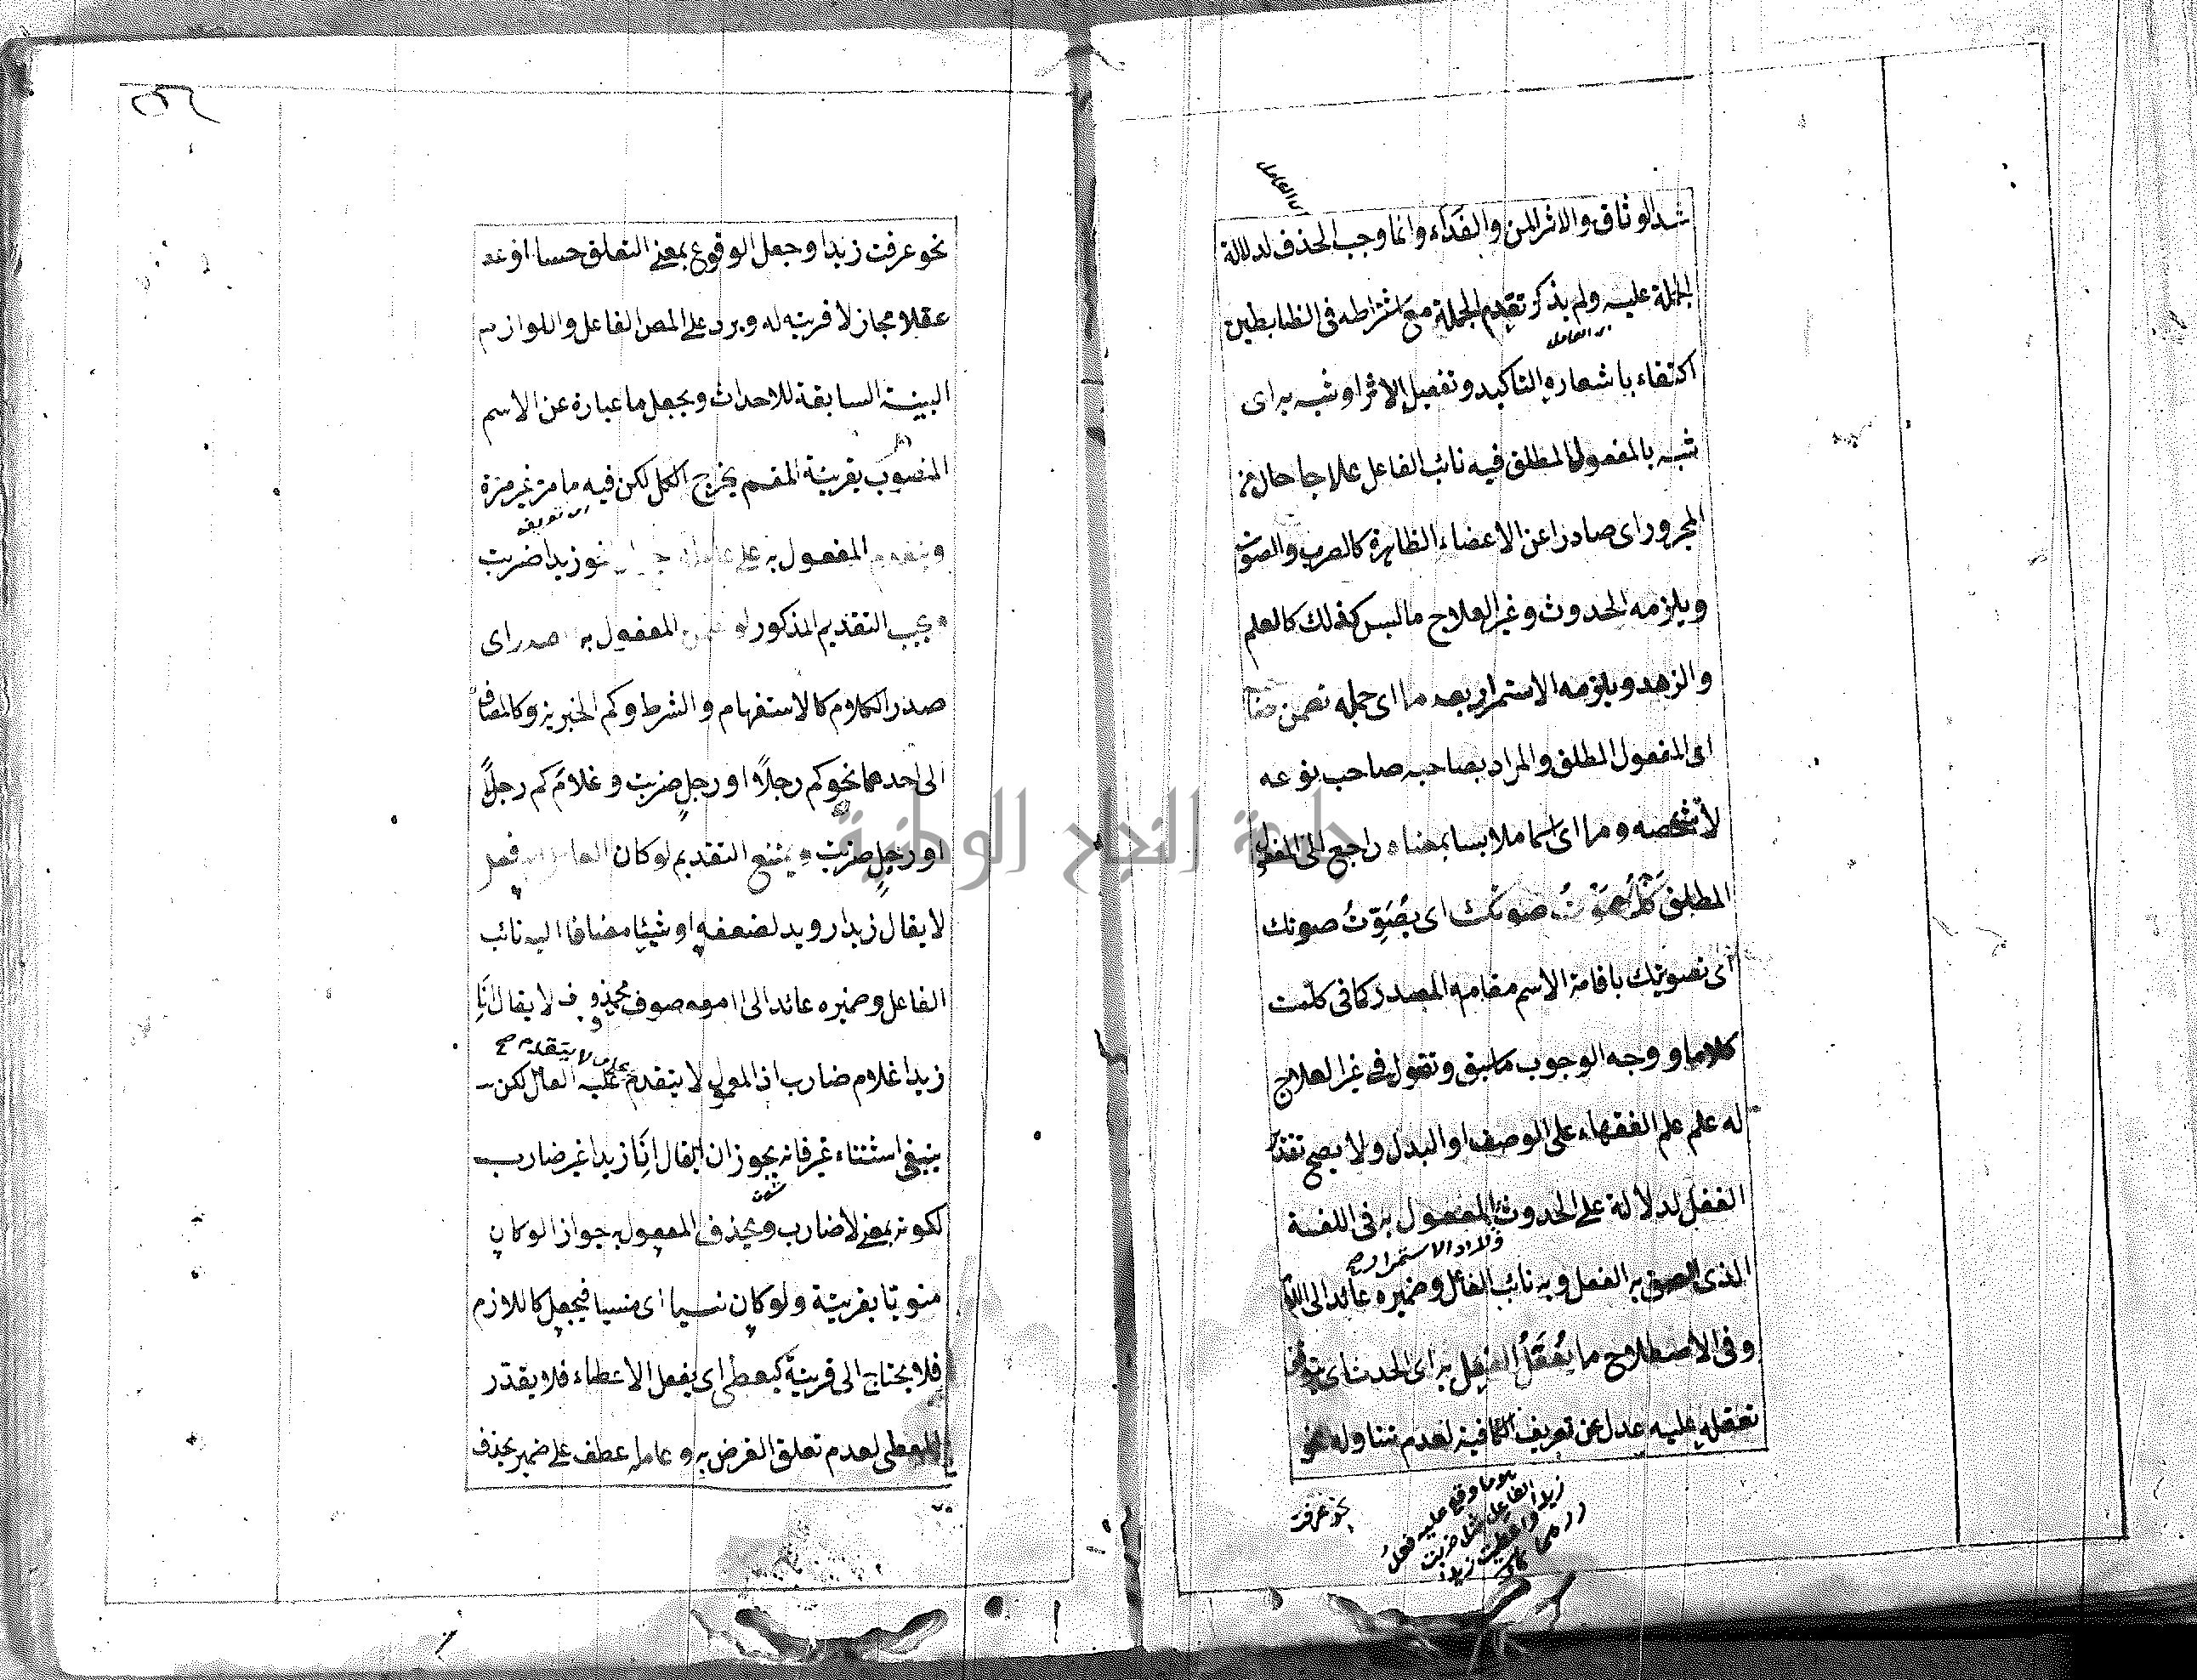 اى العامل
شد الوثاق والاثر المن والفداء وانما وجب الحذف لدلالة
الجملة عليه ولم يذكر تقدم الجملة مع اشتراطه فى الظابطين
اى العامل
اكتفاء باشعاره التاكيد وتفصيل الاثر او شبه به اى
شبه بالمفعول المطلق فيه نائب الفاعل علاجا حال من
المجرور اى صادرا عن الاعضاء الظاهرة كالضرب والصوت
ويلزمه الحدوث وغير العلاج ما ليس كذلك كالعلم
والزهد ويلزمه الاستمرار بعد ما اى جملة تضمن
اى المفعول المطلق والمراد بصاحبه صاحب نوعه
لا شخصه وما اى اسما ملابسا بمعناه راجع الى المفعول
المطلق صوتك اى يُصَوِّتُ صوتك
اى تصويتك باقامة الاسم مقام المصدر كما فى كلمت
كلاما ووجه الوجوب ما سبق وتقول فى غير العلاج
له علم علم الفقهاء على الوصف او البدل ولا يصح تقدير
الفعل لدلالة على الحدوث المفعول به فى اللغة
والمراد الاستمرار صح
الذى الصق به الفعل وبه نائب الفاعل وضميره عائد الى ال
وفى الاصطلاح ما يُعْقَلُ الفعل به اى الحدث اى
تعقله عليه عدل عن تعريف الكافية لعدم تناوله نحو
هو ما وقع عليه فعل
الفاعل مثل ضربت
زيدا واعطيت زيدا
درهما
نحو عرفت
نحو عرفت زيدا وجعل الوقوع بمعنى التعلق حسا او
عقلا مجاز لا قرينة له ويرد على المص الفاعل واللوازم
البينة السابقة للاحداث وبجعل ما عبارة عن الاسم
المنصوب بقرينة المقسم يخرج الكل لكن فيه ما مر غير مرة
اى تعريفه
ويتقدم المفعول به على عامله نحو زيدا ضربت
ويجب التقديم المذكور لو المفعول به صدر اى
صدر الكلام كالاستفهام والشرط وكم الخبرية وكالمضاف
الى احدهما نحو كم رجلاً او رجلٍ ضربت وغلامَ كم رجلاً
او رجلٍ ضربت ويمتنع التقديم لو كان العامل فعل
لا يقال زيدا رويد لضعفه او شيئا مضافا اليه نائب
الفاعل وضميره عائد الى موصوف محذوف لا يقال انا
على لا يتقدم صح
زيدا غلام ضارب اذ المعمول لا يتقدم عليه العامل لكن
ينبغى استثناء غير فانه يجوز ان يقال انا زيدا غير ضارب
لكونه بمعنى لا ضارب ويحذف المفعول به جوازا لو كان
منويا بقرينة ولو كان نسيا اى منسيا فيجعل كاللازم
فلا يحتاج الى قرينة كيعطى اى يفعل الاعطاء فلا يقدر
المعطى لعدم تعلق الغرض به وعامله عطف على ضمير يحذف
جامعة النجاح الوطنية